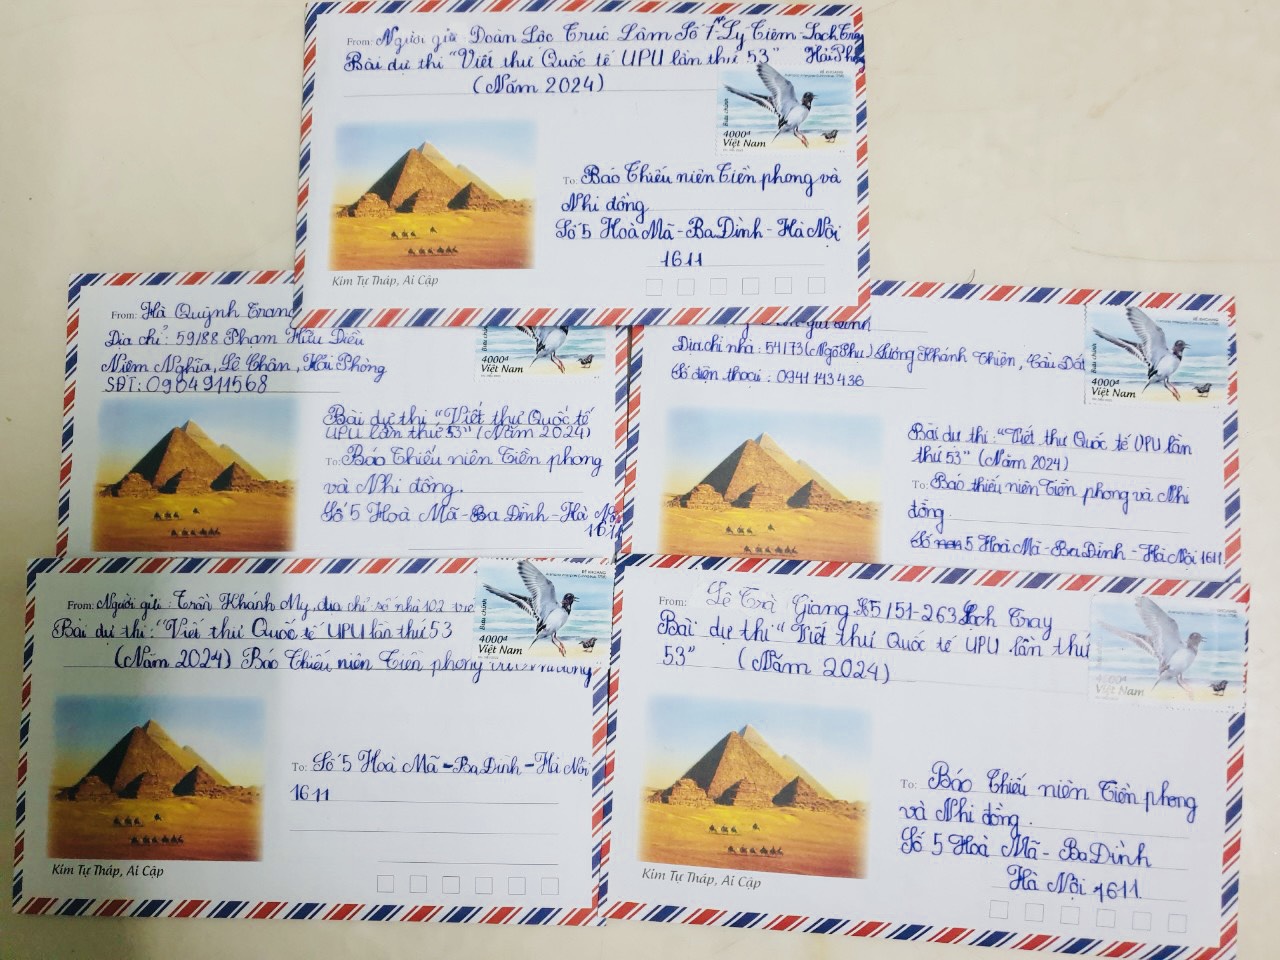 From: Người gửi Đoàn Lộc Trúc Lâm Số 7 Lý Tiêm - Lạch Tray
Bài dự thi "Viết thư Quốc tế UPU lần thứ 53" Hải Phòng
(Năm 2024)
BƯU CHÍNH
4000đ
Việt Nam
To: Báo Thiếu niên Tiền phong và
Nhi đồng
Số 5 Hoà Mã - Ba Dình - Hà Nội
1611
Kim Tự Tháp, Ai Cập
From: Hà Quỳnh Trang
Địa chỉ: 59/88 Phạm Hữu Điều
Niệm Nghĩa, Lê Chân, Hải Phòng
SĐT: 0904911568
4000đ
Việt Nam
Bài dự thi "Viết thư Quốc tế
UPU lần thứ 53" (Năm 2024)
To: Báo Thiếu niên Tiền phong
và Nhi đồng.
Số 5 Hoà Mã - Ba Dình - Hà Nội
1611
Địa chỉ nhà: 54/73 (Ngõ Phu) Lương Khánh Thiện, Cầu Đất
Số điện thoại: 0941143436
Bưu chính
4000đ
Việt Nam
Bài dự thi: "Viết thư Quốc tế UPU lần
thứ 53" (Năm 2024)
To: Báo thiếu niên Tiền phong và Nhi
đồng
Số 5 Hoà Mã - Ba Dình - Hà Nội 1611
From: Người gửi: Trần Khánh My, địa chỉ số nhà 102
Bài dự thi: "Viết thư Quốc tế UPU lần thứ 53
(Năm 2024) Báo Thiếu niên Tiền phong
Bưu chính
4000đ
Việt Nam
To: Số 5 Hoà Mã - Ba Dình - Hà Nội
1611
Kim Tự Tháp, Ai Cập
From: Lê Trà Giang 15/51-263 Lạch Tray
Bài dự thi "Viết thư Quốc tế UPU lần thứ
53" (Năm 2024)
4000đ
Việt Nam
To: Báo Thiếu niên Tiền phong
và Nhi đồng.
Số 5 Hoà Mã - Ba Dình
Hà Nội 1611.
Kim Tự Tháp, Ai Cập